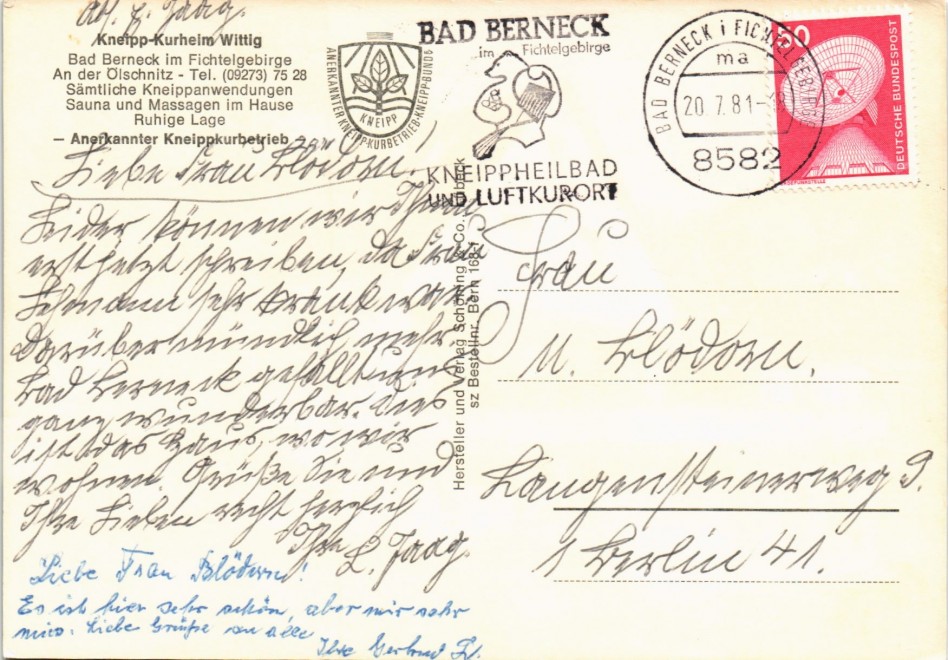 Abs. L. Jaag.
Kneipp-Kurheim Wittig
Bad Berneck im Fichtelgebirge
An der Ölschnitz - Tel. (09273) 75 28
Sämtliche Kneippanwendungen
Sauna und Massagen im Hause
Ruhige Lage
— Anerkannter Kneippkurbetrieb —
ANERKANNTER KNEIPPKURBETRIEB · KNEIPP-BUND
KNEIPP
BAD BERNECK
im Fichtelgebirge
KNEIPPHEILBAD
UND LUFTKURORT
BAD BERNECK i FICHTELGEBIRGE
ma
20.7.81
8582
50
DEUTSCHE BUNDESPOST
Liebe Frau Blödorn!
Leider können wir Ihnen
erst jetzt schreiben, da Frau
Lehmann sehr krank war
darüber mündlich mehr.
Bad Berneck gefällt uns
ganz wunderbar. Dies
ist das Haus, wo wir
wohnen. Grüße Sie und
Ihre Lieben recht herzlich
Ihre L. Jaag.
Liebe Frau Blödorn!
Es ist hier sehr schön, aber mir sehr
mies. Liebe Grüße an alle
Ihre Gertrud
Hersteller und Verlag Schöning & Co., Lübeck
sz Bestellnr. Bern
Frau
M. Blödorn.
Langensteinerweg 9.
1 Berlin 41.